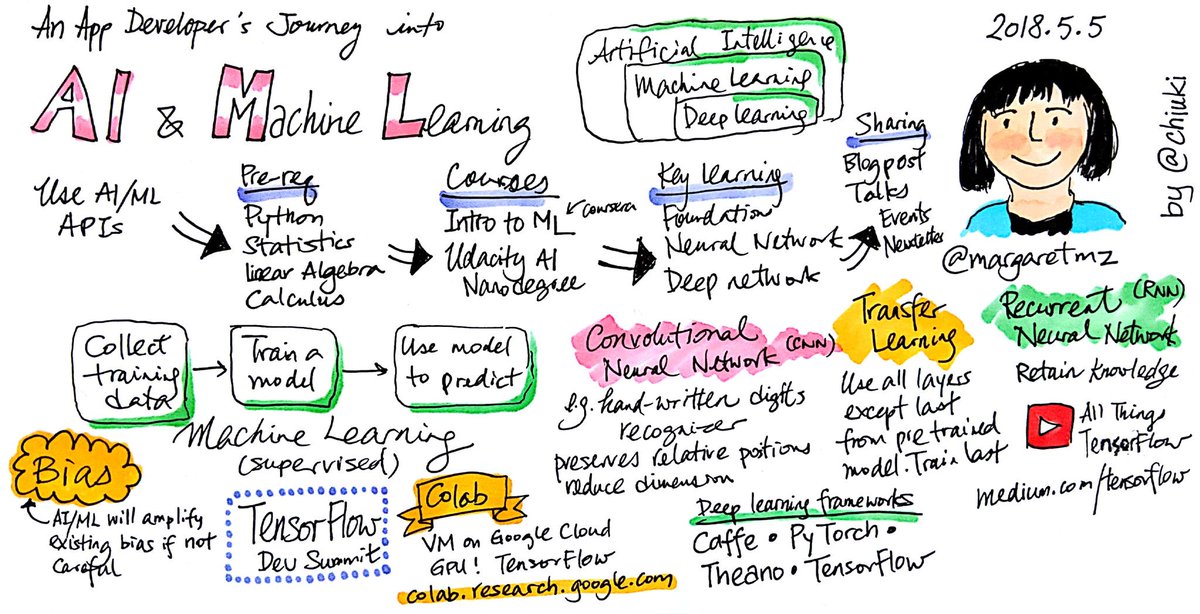 An App Developer's Journey into
AI & Machine Learning
Artificial Intelligence
Machine Learning
Deep learning
2018.5.5
by @chiuki
@margaretmz
Use AI/ML
APIs
Pre-req
Python
Statistics
linear Algebra
Calculus
Courses
Intro to ML
coursera
Udacity AI
Nanodegree
Key learning
Foundation
Neural Network
Deep network
Sharing
Blogpost
Talks
Events
Newsletter
Collect
training
data
Train a
model
Use model
to predict
Machine Learning
(supervised)
Bias
AI/ML will amplify
existing bias if not
careful
TensorFlow
Dev Summit
Colab
VM on Google Cloud
GPU! TensorFlow
colab.research.google.com
Convolutional
Neural Network (CNN)
e.g. hand-written digits
recognizer
preserves relative positions
reduce dimension
Transfer
Learning
Use all layers
except last
from pretrained
model. Train last
Recurrent (RNN)
Neural Network
Retain Knowledge
All Things
TensorFlow
medium.com/tensorflow
Deep learning frameworks
Caffe • PyTorch •
Theano • TensorFlow